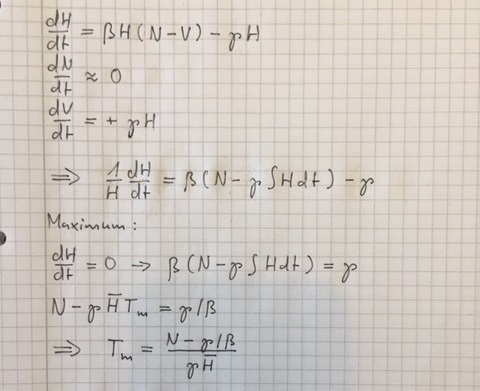 dH/dt = βH(N-V) - γH
dN/dt ≈ 0
dV/dt = + γH
⇒ 1/H dH/dt = β(N - γ∫Hdt) - γ
Maximum:
dH/dt = 0 → β(N-γ∫Hdt) = γ
N - γH̅T_m = γ/β
⇒ T_m = (N - γ/β)/(γH̅)